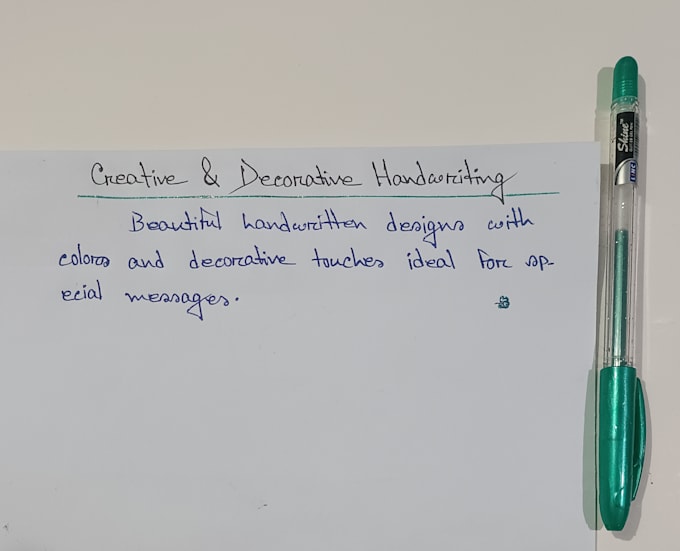 Creative & Decorative Handwriting
Beautiful handwritten designs with
colors and decorative touches ideal for sp-
ecial messages.
Shine
LINC